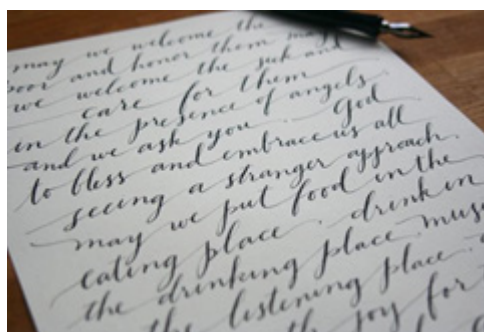 may we welcome the
poor and honor them may
we welcome the sick and
care for them
in the presence of angels.
and we ask you God
to bless and embrace us all
seeing a stranger approach.
may we put food in the
eating place. drink in
the drinking place. music
the listening place.
the joy for